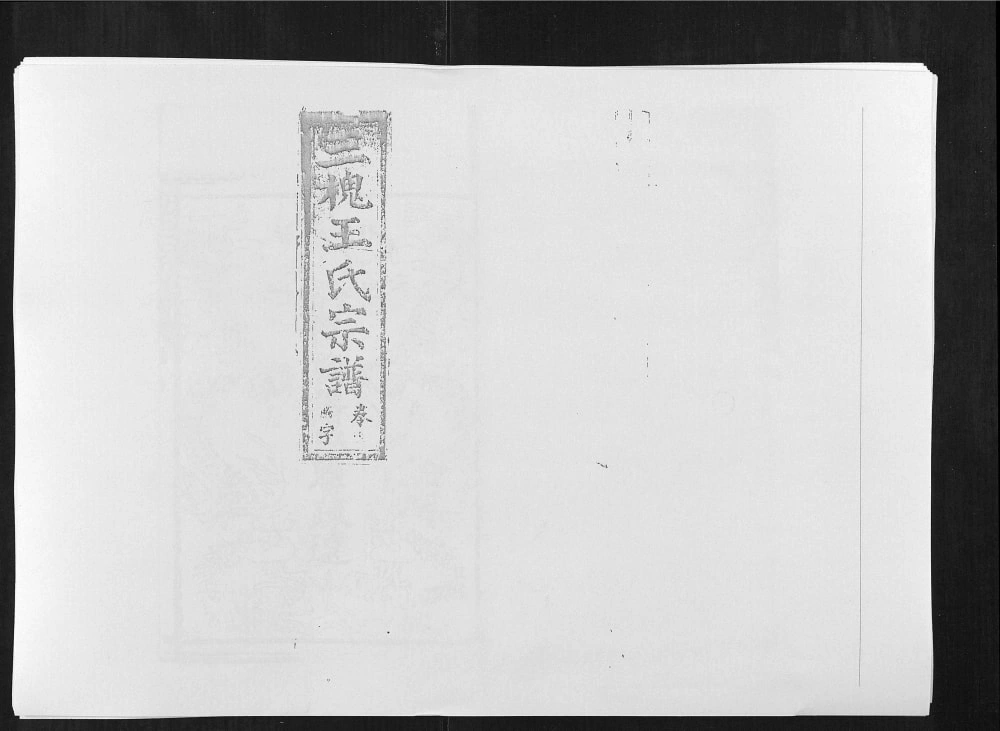 三槐王氏宗譜
卷
字